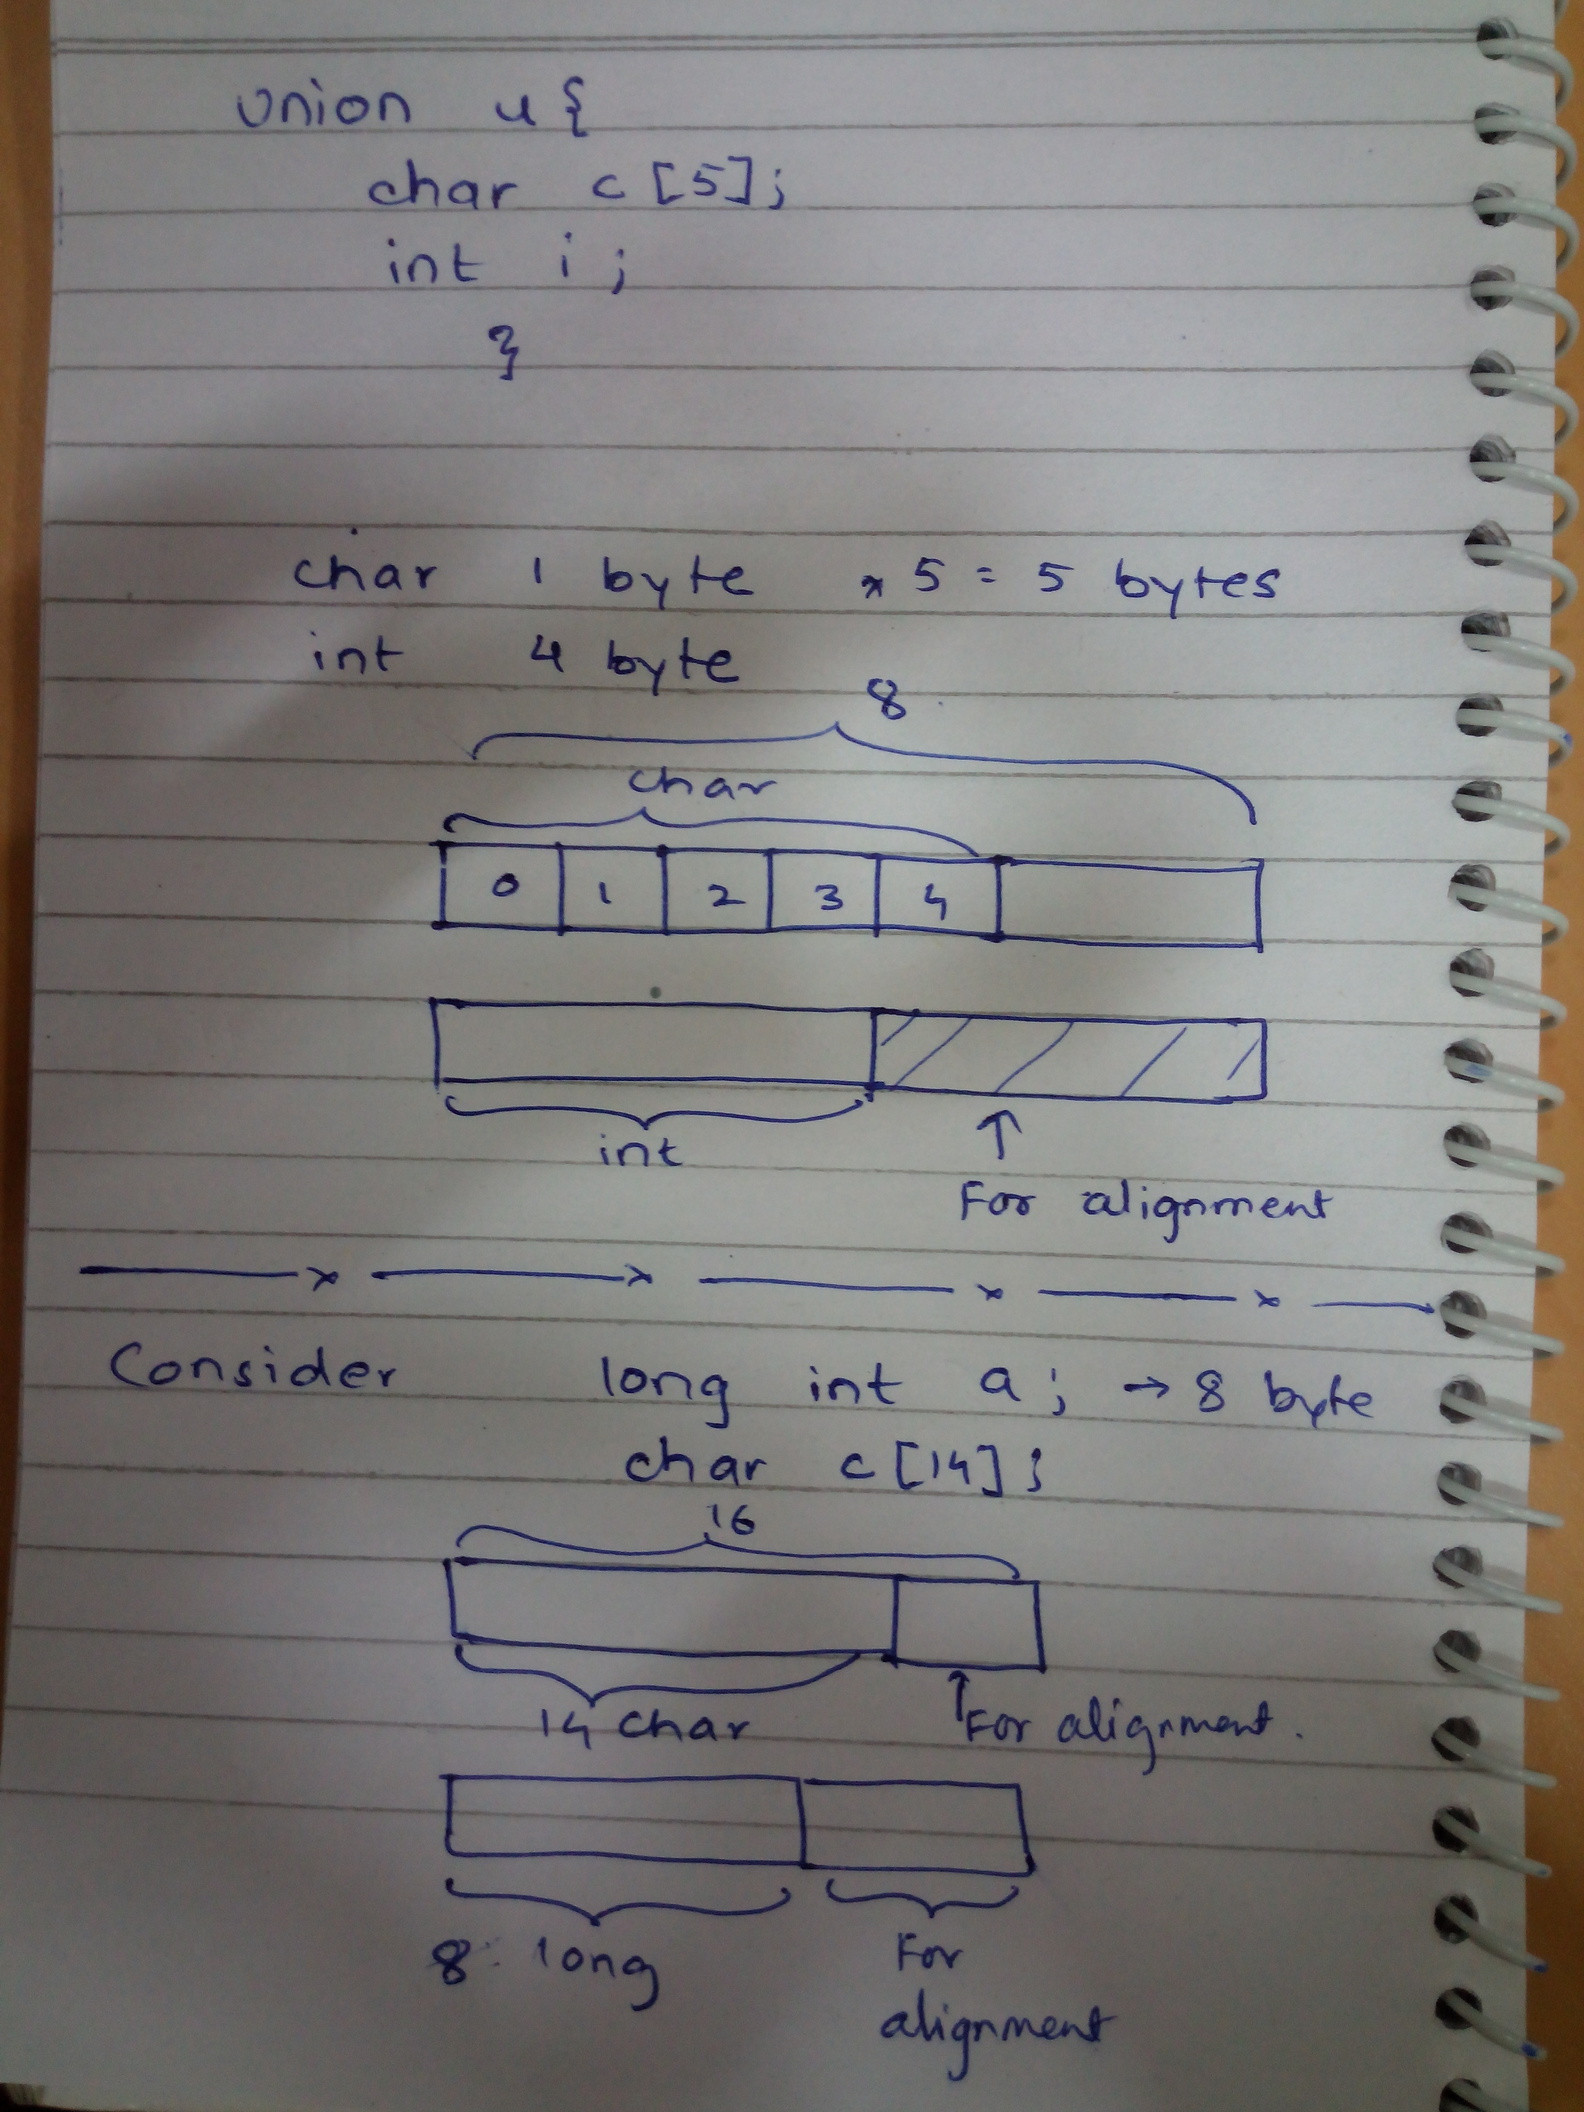 union u{
char c[5];
int i;
}
char 1 byte * 5 = 5 bytes
int 4 byte
8
char
0 1 2 3 4
int
For alignment
Consider long int a; → 8 byte
char c[14];
16
14 char
For alignment.
8 long
For
alignment